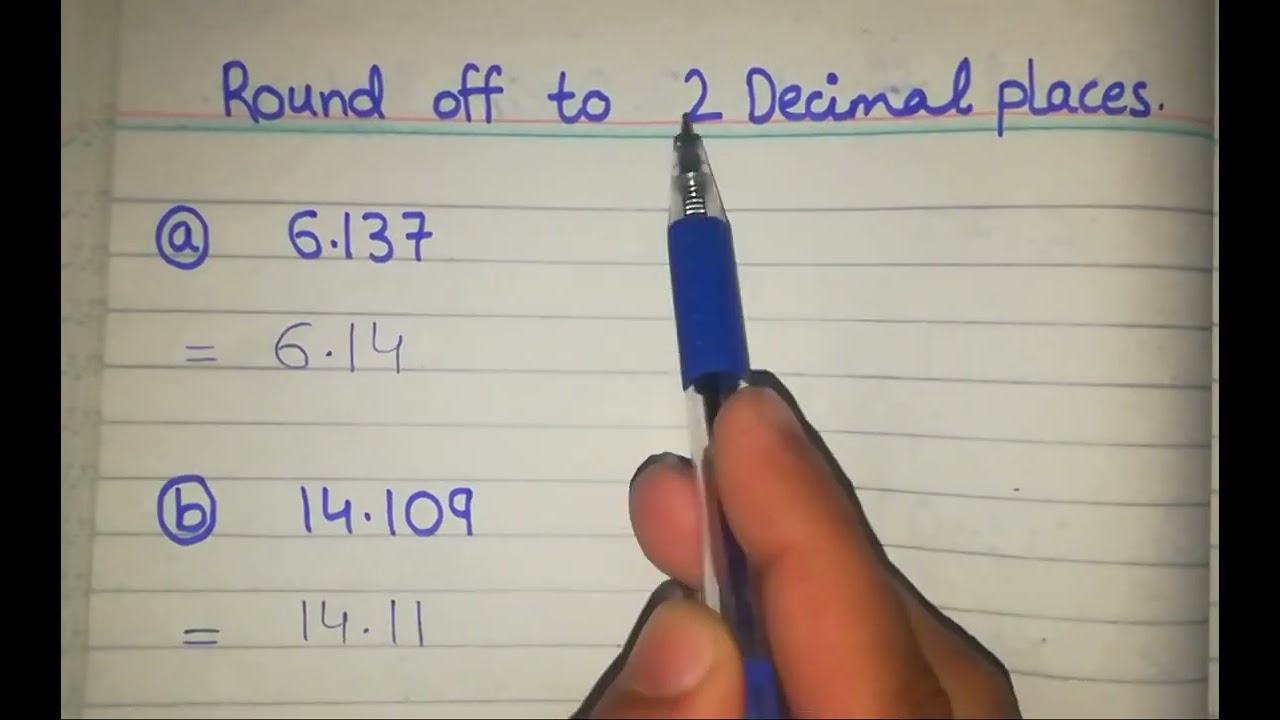 Round off to 2 Decimal places.
a 6.137
= 6.14
b 14.109
= 14.11